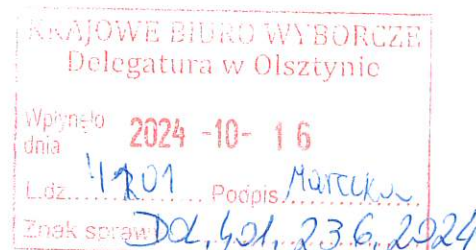 KRAJOWE BIURO WYBORCZE
Delegatura w Olsztynie
Wpłynęło
dnia 2024 -10- 16
L.dz. Podpis
Znak sprawy DOL.401.23.6.2024